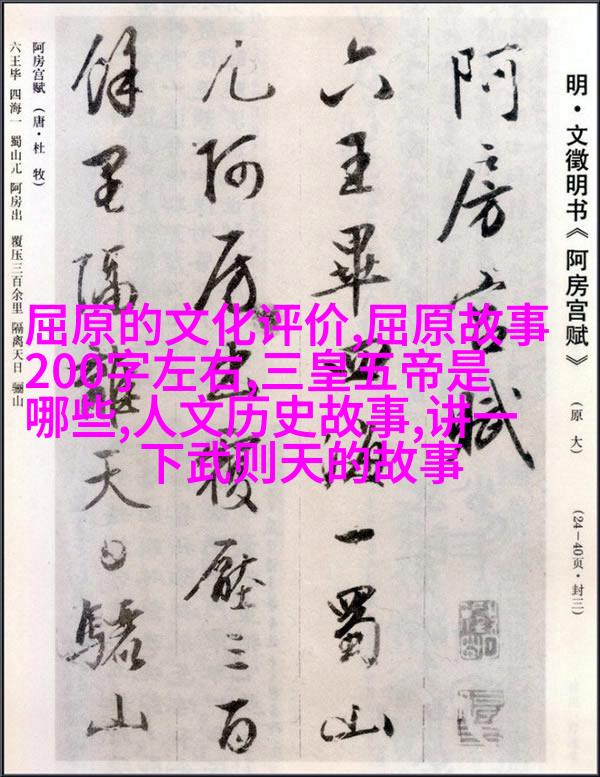 明·文徵明书《阿房宫赋》
(原大)
(24—40页·封三)
阿房宮賦
六王畢四海一蜀山
兀阿房出覆壓三百
餘里隔離天日驪山
阿房宫赋 (唐·杜 牧)
六王毕 四海一 蜀山兀 阿房出 覆压三百余里 隔离天日 骊山
屈原的文化评价,屈原故事
200字左右,三皇五帝是
哪些,人文历史故事,讲一
下武则天的故事